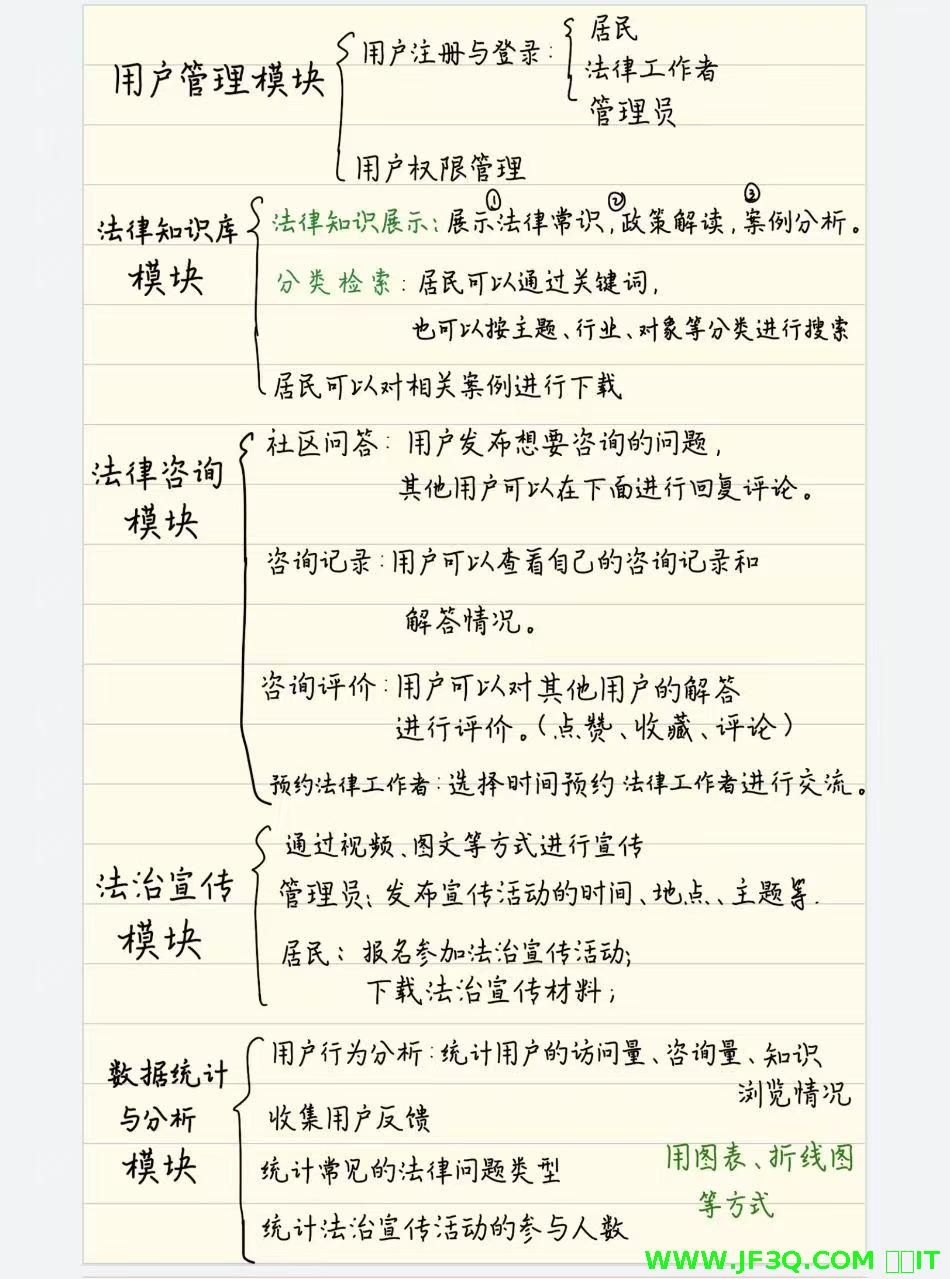 用户管理模块
用户注册与登录：
居民
法律工作者
管理员
用户权限管理
法律知识库
模块
① ② ③
法律知识展示：展示法律常识，政策解读，案例分析。
分类检索：居民可以通过关键词，
也可以按主题、行业、对象等分类进行搜索
居民可以对相关案例进行下载
法律咨询
模块
社区问答：用户发布想要咨询的问题，
其他用户可以在下面进行回复评论。
咨询记录：用户可以查看自己的咨询记录和
解答情况。
咨询评价：用户可以对其他用户的解答
进行评价。（点赞、收藏、评论）
预约法律工作者：选择时间预约法律工作者进行交流。
法治宣传
模块
通过视频、图文等方式进行宣传
管理员：发布宣传活动的时间、地点、主题等.
居民：报名参加法治宣传活动；
下载法治宣传材料；
数据统计
与分析
模块
用户行为分析：统计用户的访问量、咨询量、知识
浏览情况
收集用户反馈
统计常见的法律问题类型
统计法治宣传活动的参与人数
用图表、折线图
等方式
WWW.JF3Q.COM IT